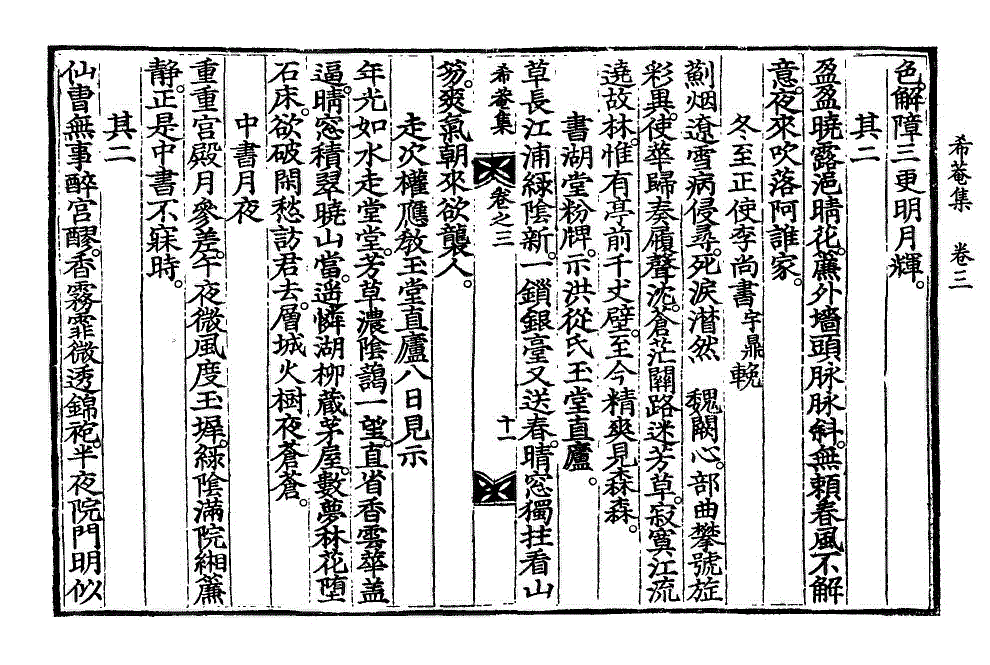 希菴集　卷三
色。解障三更明月輝。
其二
盈盈曉露浥晴花。簾外墻頭脉脉斜。無賴春風不解
意。夜來吹落阿誰家。
冬至正使李尙書宇鼎輓
薊烟遼雪病侵尋。死淚潸然　魏闕心。部曲攀號旋
彩異。使華歸奏履聲沈。蒼茫關路迷芳草。寂寞江流
遶故林。惟有亭前千丈壁。至今精爽見森森。
書湖堂粉牌。示洪從氏玉堂直廬。
草長江浦綠陰新。一鎖銀臺又送春。晴窓獨拄看山
希菴集　卷之三　十一
笏。爽氣朝來欲襲人。
走次權應敎玉堂直廬八日見示
年光如水走堂堂。芳草濃陰藹一望。直省香雲華盖
逼。晴窓積翠曉山當。遥憐湖柳藏茅屋。數夢林花堕
石床。欲破閑愁訪君去。層城火樹夜蒼蒼。
中書月夜
重重宮殿月參差。午夜微風度玉墀。綠陰滿院緗簾
静。正是中書不寐時。
其二
仙曺無事醉宮醪。香霧霏微透錦袍。半夜院門明似